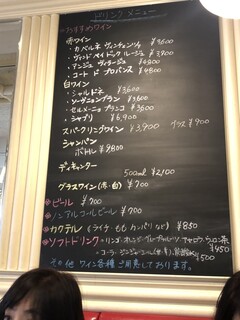 ドリンクメニュー
*おすすめワイン
赤ワイン
・カベルネ ヴィンテンツァ ¥3600
・ヴァン ド ペイ ドック ルージュ ¥3900
・アンジュ ヴィラージュ ¥4800
・コート ド プロバンス ¥4800
白ワイン
・シャルドネ ¥3600
・ソーヴィニヨンブラン ¥3600
・ビアンコ ¥3600
・シャブリ ¥6,900
スパークリングワイン ¥3,900 グラス ¥900
シャンパン
ボトル ¥9800
デキャンター
500ml ¥2100
グラスワイン(赤・白) ¥700
*ビール ¥700
*ノンアルコールビール ¥700
*カクテル (ライチ・もも カンパリなど) ¥850
*ソフトドリンク ・リンゴ・オレンジ・グレープフルーツ ウーロン茶 ¥450
・コーラ・ジンジャーエール(甘・辛) ¥500
その他 ワイン各種ご用意しております。